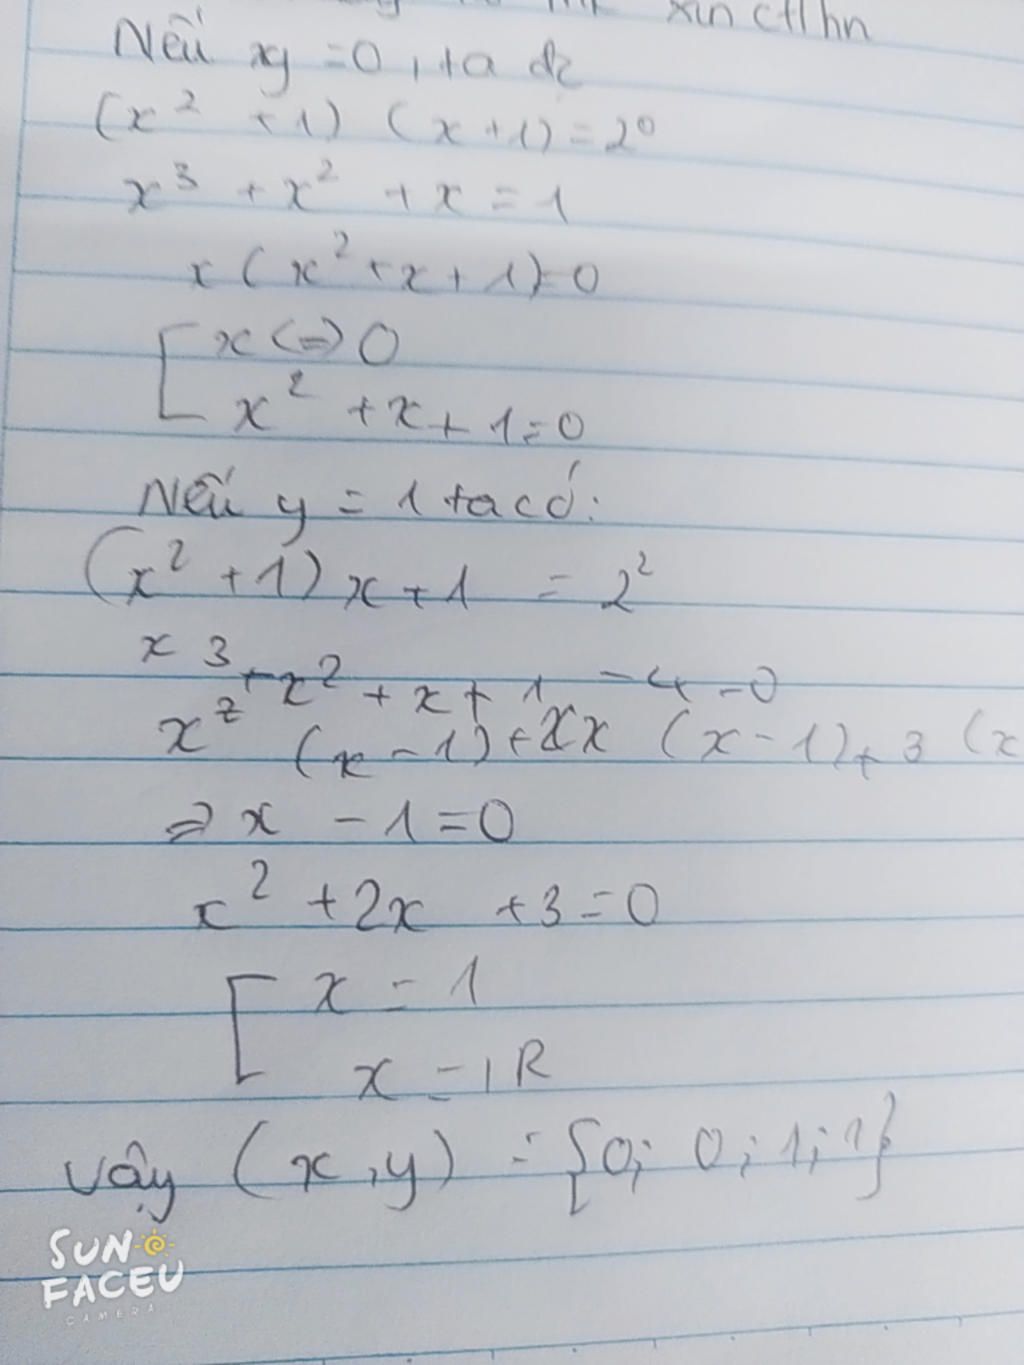 xin ctlhn
Nếu xy = 0, ta đc
(x² + 1) (x + 1) = 2⁰
x³ + x² + x = 1
x (x² + x + 1) = 0
[ x <=> 0
x² + x + 1 = 0
Nếu y = 1 ta có:
(x² + 1) x + 1 = 2²
x³ + x² + x + 1 - 4 - 0
x² (x - 1) + 2x (x - 1) + 3 (x
=> x - 1 = 0
x² + 2x + 3 = 0
[ x = 1
x = 1R
Vậy (x, y) = {0; 0; 1; 1}
SUN
FACEU
CAMERA